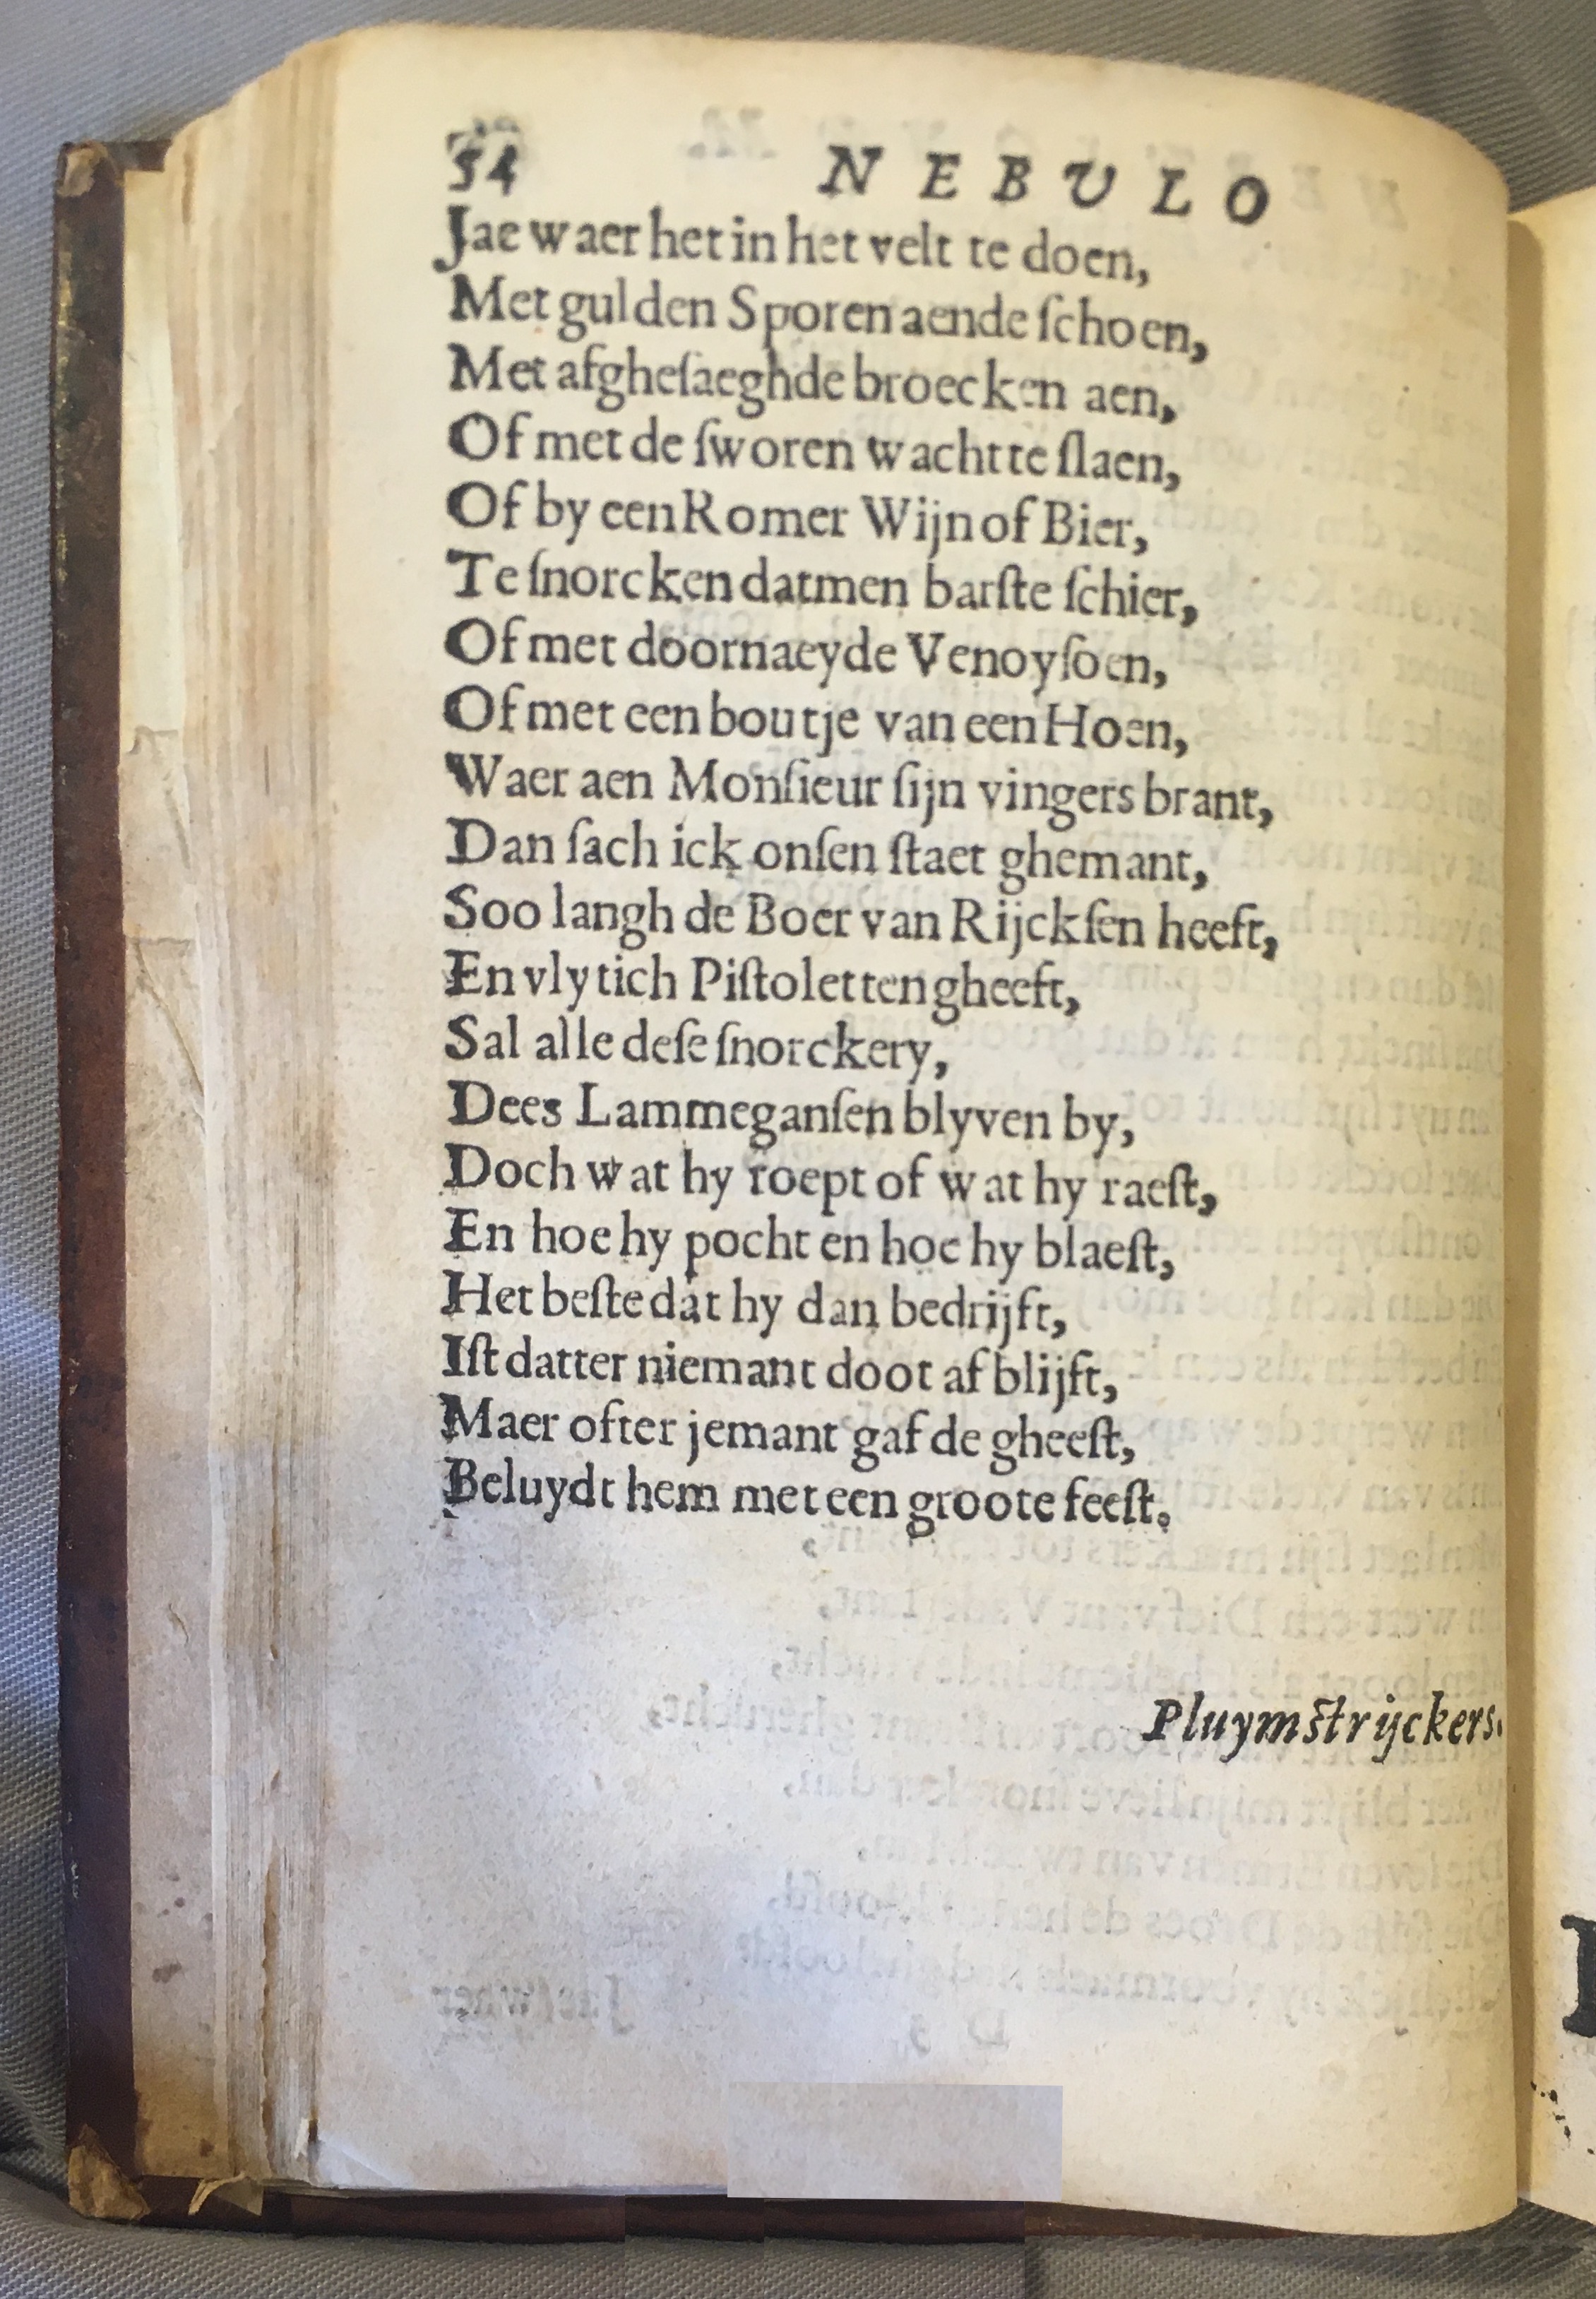 54 NEBULO
Jae waer het in het velt te doen,
Met gulden Sporen aende ſchoen,
Met afgheſaeghde broecken aen,
Of met de ſworen wacht te ſlaen,
Of by een Romer Wijn of Bier,
Te ſnorcken datmen barſte ſchier,
Of met doornaeyde Venoyſoen,
Of met een boutje van een Hoen,
Waer aen Monſieur ſijn vingers brant,
Dan ſach ick onſen ſtaet ghemant,
Soo langh de Boer van Rijckſen heeft,
En vlytich Piſtoletten gheeft,
Sal alle deſe ſnorckery,
Dees Lammeganſen blyven by,
Doch wat hy roept of wat hy raeſt,
En hoe hy pocht en hoe hy blaeſt,
Het beſte dat hy dan bedrijft,
Iſt datter niemant doot af blijft,
Maer ofter jemant gaf de gheeſt,
Beluydt hem met een groote feeſt.
Pluymſtrijckers.